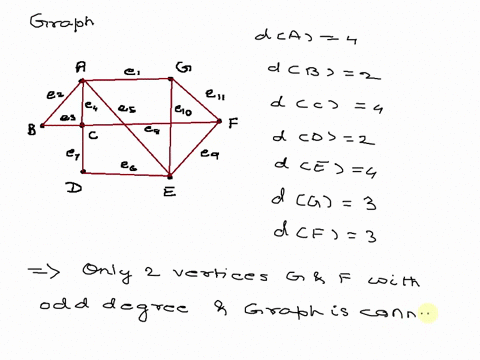 Graph
A e1 G
e2 e4 e5 e10 e11
B e3 C e8 F
e7 e6 e9
D E
d(A) = 4
d(B) = 2
d(C) = 4
d(D) = 2
d(E) = 4
d(G) = 3
d(F) = 3
=> Only 2 vertices G & F with
odd degree & Graph is conn